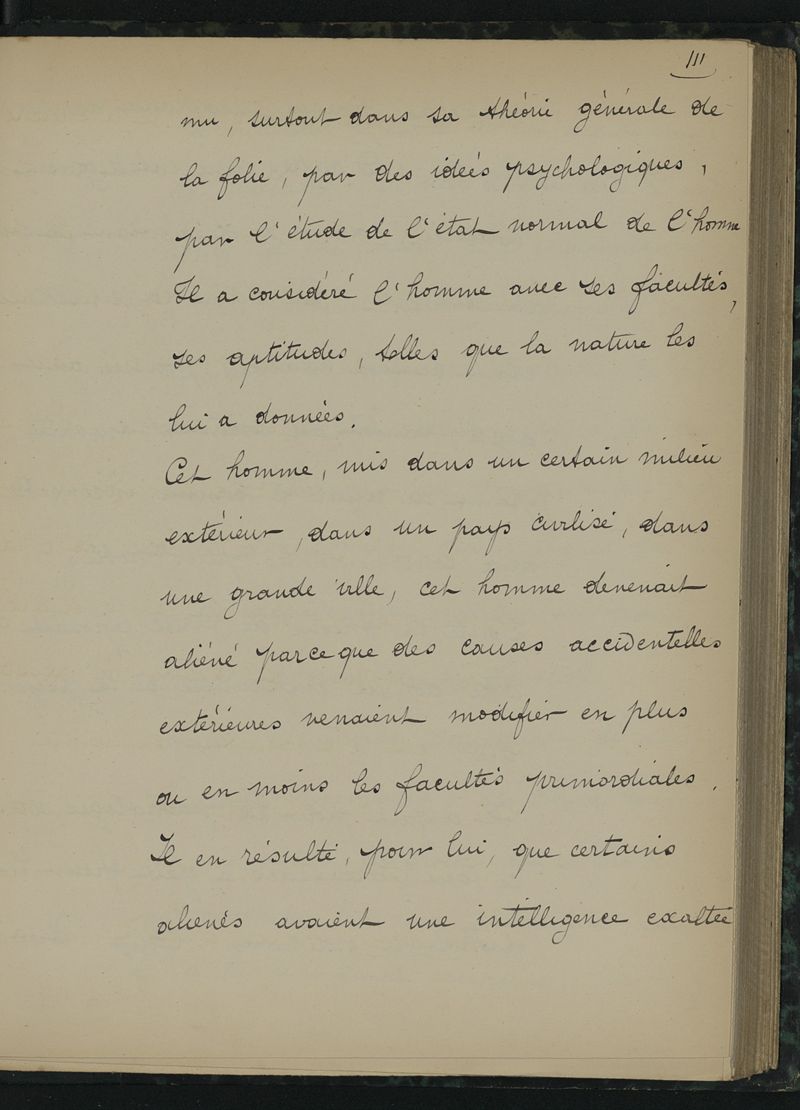 111
mu, surtout dans sa théorie générale de
la folie, par des ideés psychologiques,
par l'étude de l'état normal de l'homme
Il a considéré l'homme avec ses facultés,
ses aptitudes, telles que la nature les
lui a données.
Cet homme, mis dans un certain milieu
extérieur, dans un pays civilisé, dans
une grande ville, cet homme devenait
aliéné parceque des causes accidentelles
extérieures venaient modifier en plus
ou en moins les facultés primordiales.
Il en résulte, pour lui, que certains
alienés avaient une intelligence exaltée